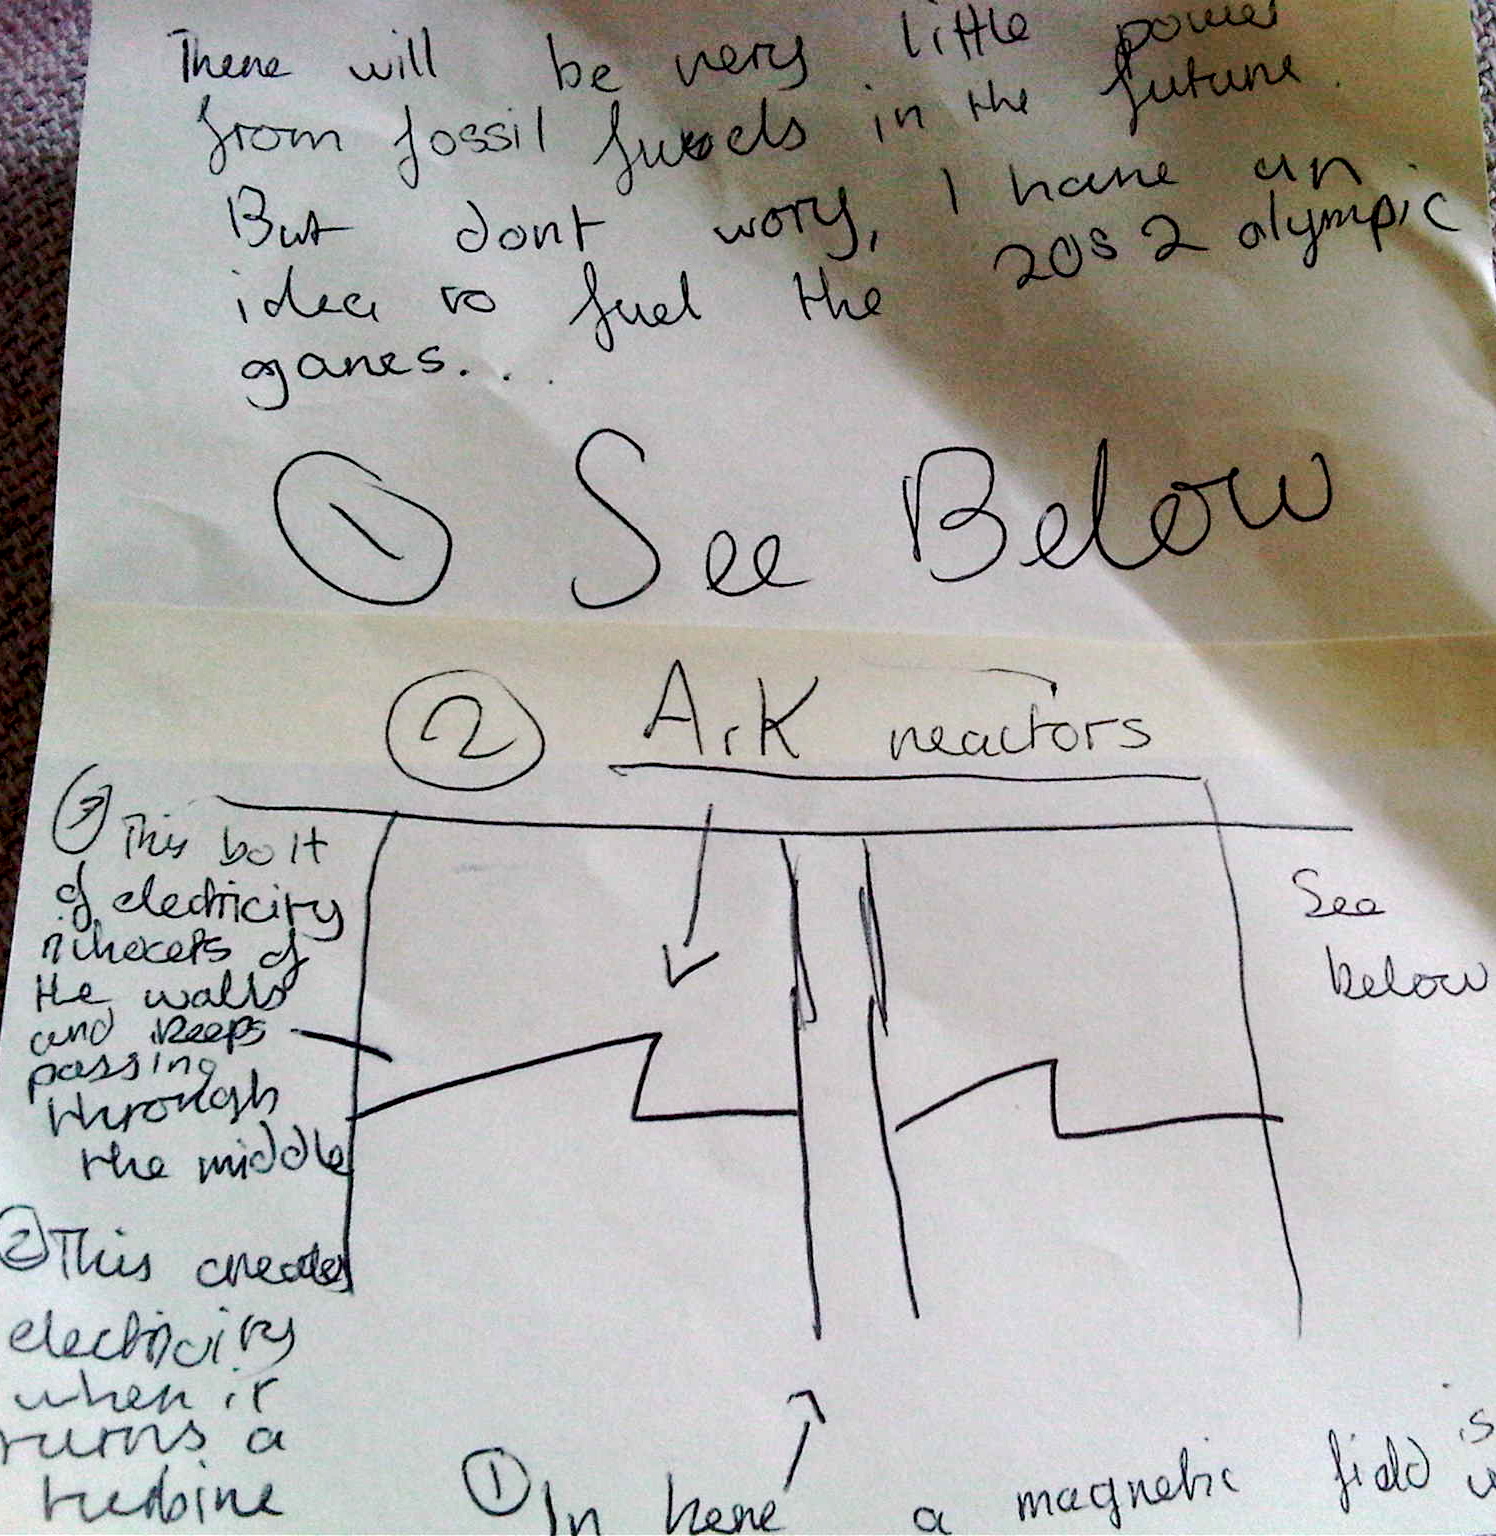 There will be very little power
from fossil fuels in the future.
But dont wory, I have an
idea to fuel the 2052 olympic
games...
1 See Below
2 Ark reactors
3 This bolt
of electricity
of
the walls
and keeps
passing
through
the middle
See
below
2 This creates
electricity
when it
turns a
turbine
1 In here a magnetic field is